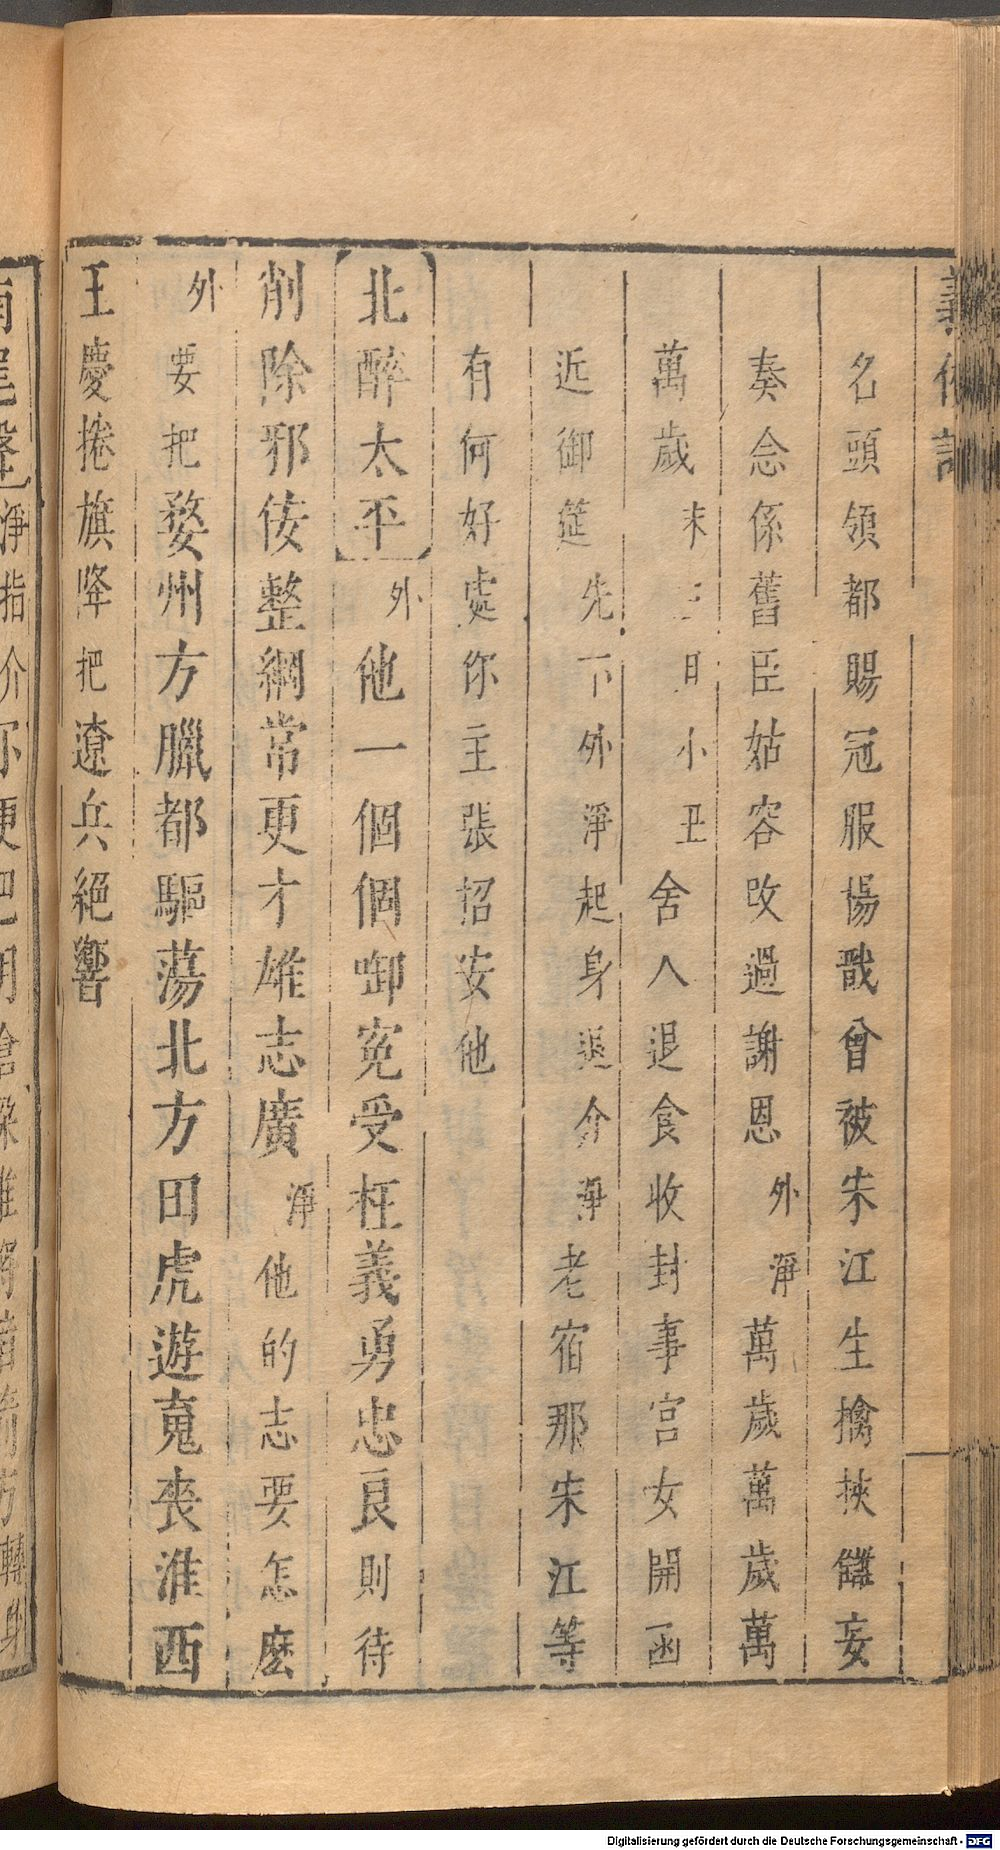 名頭領都賜冠服楊戩曾被宋江生擒挾讎妄
奏念係舊臣姑容改過謝恩外淨萬歲萬歲萬
萬歲末小丑舍人退食收封事宮女開函
近御筵先下外淨起身退介淨老宿那宋江等
有何好處你主張招安他
北醉太平外他一個個啣寃受枉義勇忠良則待
削除邪佞整綱常更才雄志廣淨他的志要怎麼
外要把婺州方臘都驅蕩北方田虎遊䰟丧淮西
王慶捲旗降把遼兵絕響
Digitalisierung gefördert durch die Deutsche Forschungsgemeinschaft - DFG